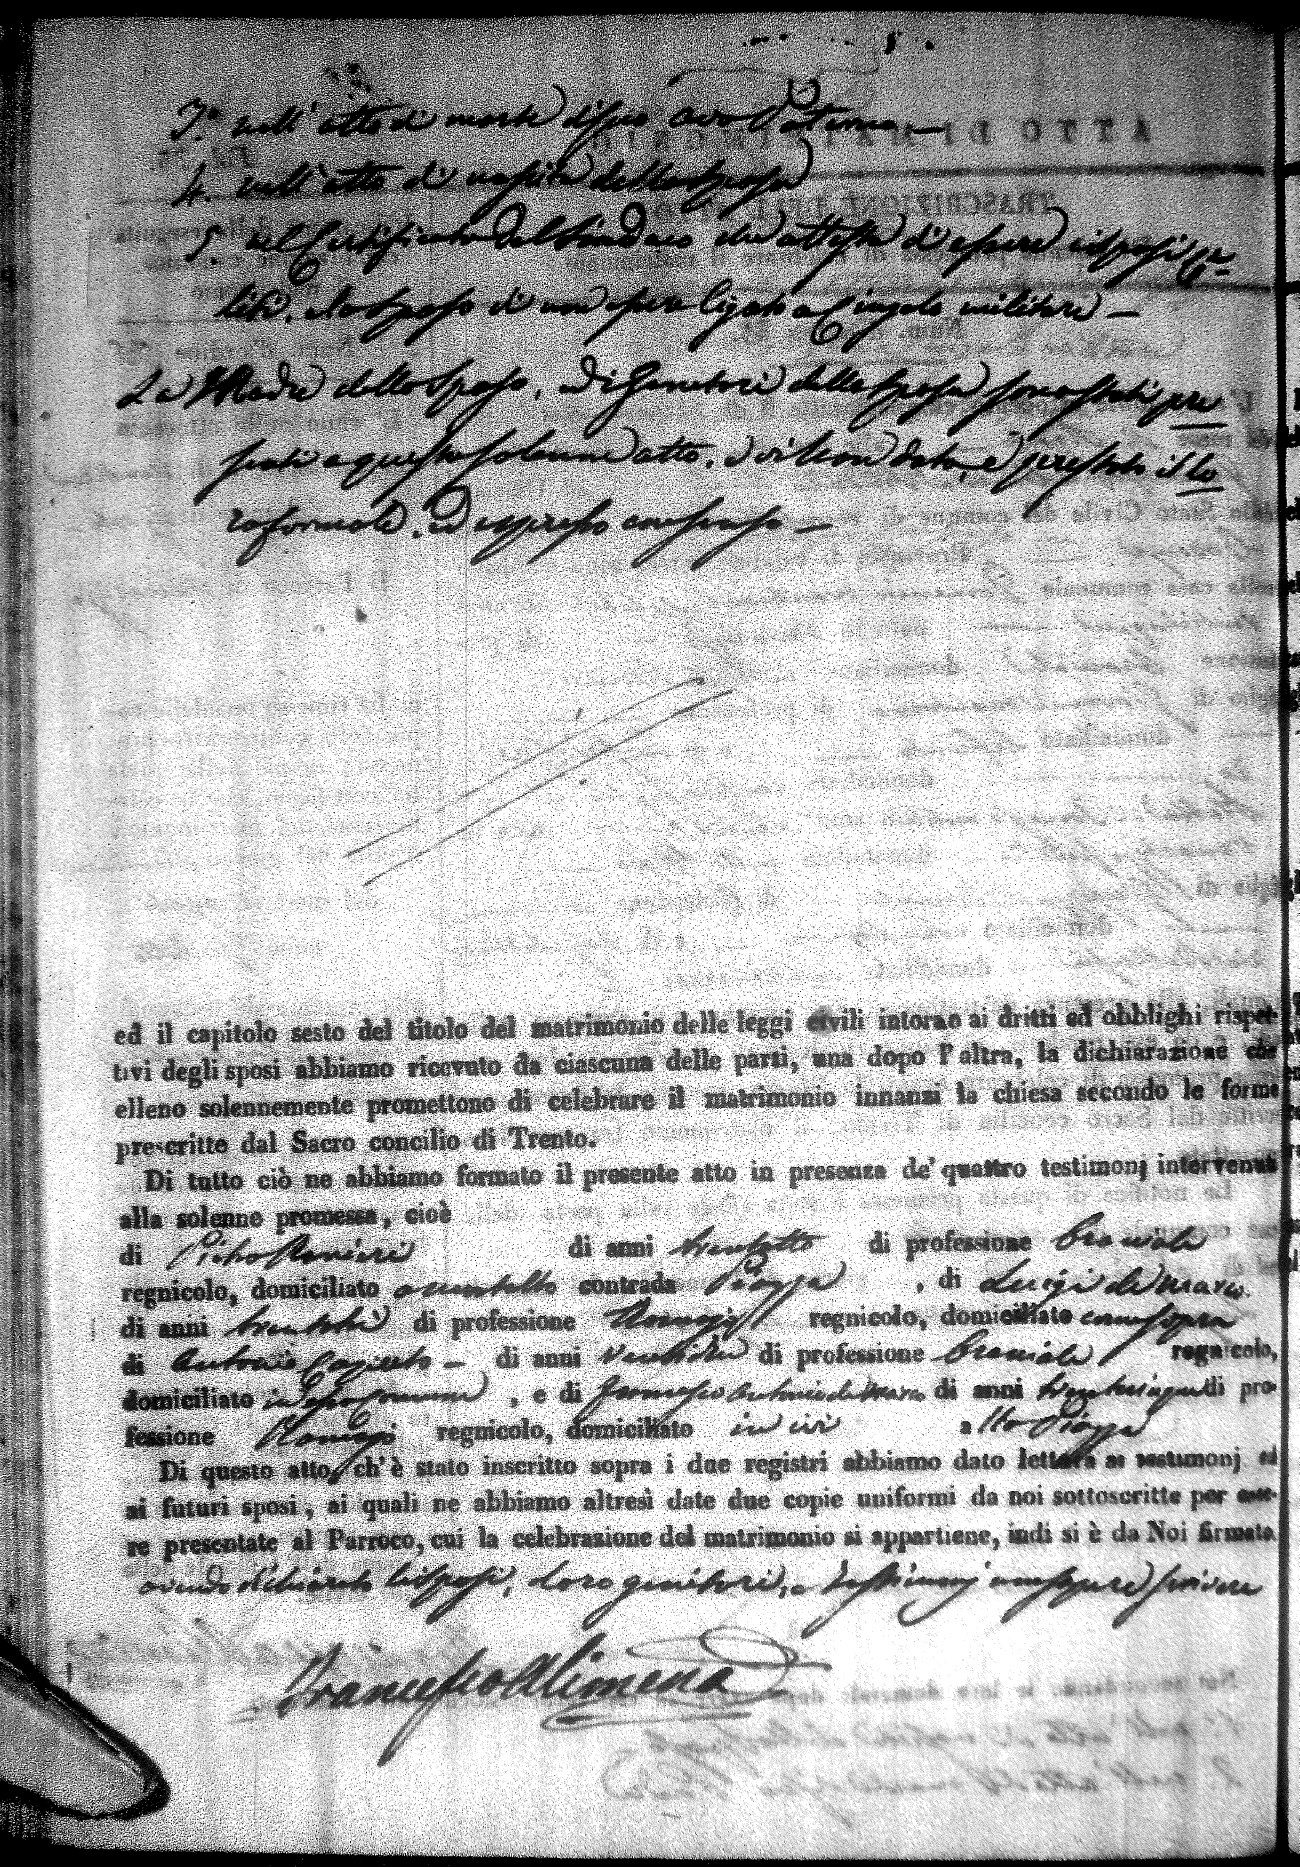 3.° nell'atto di morte di suo avo Paterno —
4. nell'atto di nascita della sposa
5. nel Certificato del Sindaco che attesta di essere i sposi
e lo sposo di non essere ligato a Cingolo militare —
La Madre dello sposo, i Genitori della sposa sono stati pre
senti a questo solenne atto, e vi hanno dato, e prestato il lo
ro formale, ed espresso consenso —
ed il capitolo sesto del titolo del matrimonio delle leggi civili intorno ai dritti ed obblighi rispet-
tivi degli sposi abbiamo ricevuto da ciascuna delle parti, una dopo l'altra, la dichiarazione che
elleno solennemente promettono di celebrare il matrimonio innanzi la chiesa secondo le forme
prescritte dal Sacro concilio di Trento.
Di tutto ciò ne abbiamo formato il presente atto in presenza de' quattro testimonj intervenuti
alla solenne promessa, cioè
di Pietro Ranieri di anni trentotto di professione Braciale
regnicolo, domiciliato contrada Piazza , di Luigi di Marco
di anni di professione regnicolo, domiciliato come sopra
di Antonio — di anni di professione Braciale regnicolo,
domiciliato in , e di Francesco Antonio di Marco di anni trentacinque di pro-
fessione regnicolo, domiciliato in ivi allo Piazza
Di questo atto, ch'è stato inscritto sopra i due registri abbiamo dato lettura ai testimonj ed
ai futuri sposi, ai quali ne abbiamo altresì date due copie uniformi da noi sottoscritte per esse-
re presentate al Parroco, cui la celebrazione del matrimonio si appartiene, indi si è da Noi firmato
avendo dichiarato li sposi, i loro genitori, e testimonj non sapere scrivere
Francesco Alimena